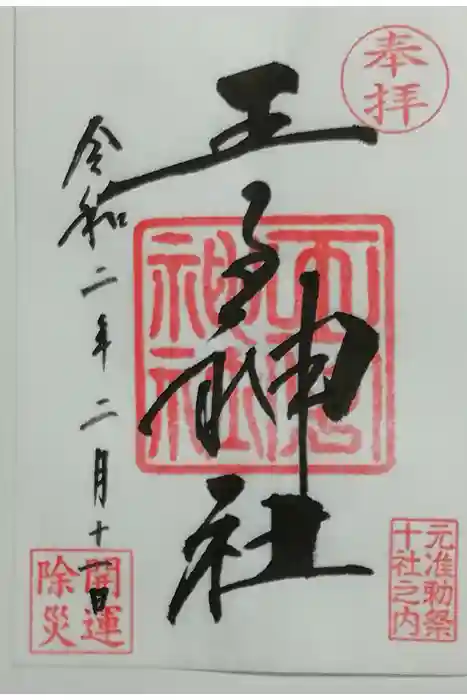 奉拝
王子神社
元准勅祭
十社之内
令和二年二月十一日
開運
除災